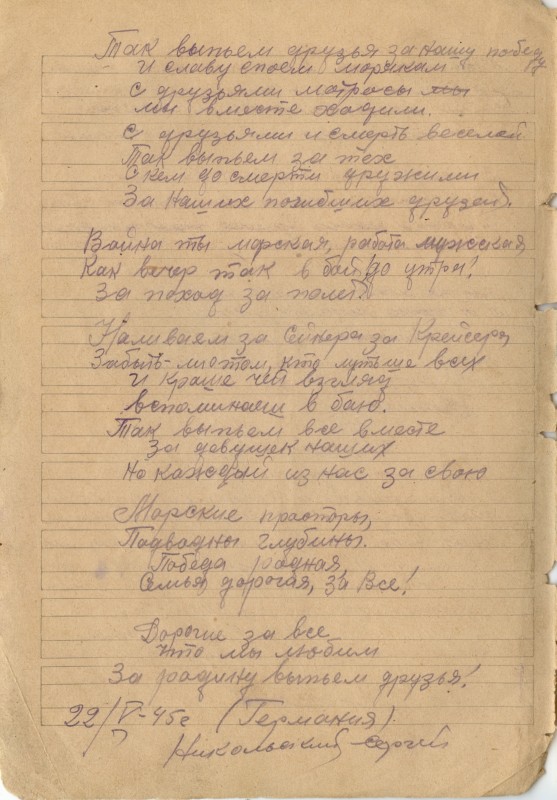 Так выпьем друзья за нашу победу
И славу споем морякам
С друзьями матросы мы
мы вместе ходили.
С друзьями и смерть веселей
Так выпьем за тех
С кем до смерти дружили
За Наших погибших друзей.
Война ты морская, работа мужская
Как вечер так в бой, до утра!
За поход за полет
Наливаем за
за Крейсера
кто лутьше всех
И Краше чей взгляд
вспоминаем в баю.
Так выпьем все вместе
За девушек наших
Но каждый из нас за свою
Морские просторы,
Подводны глубины.
Победа родная,
Семья дорогая, за Все!
Дорогие за все
что мы любим
За родину выпьем друзья!
22/V-45г (Германия).
Никольский Сергей